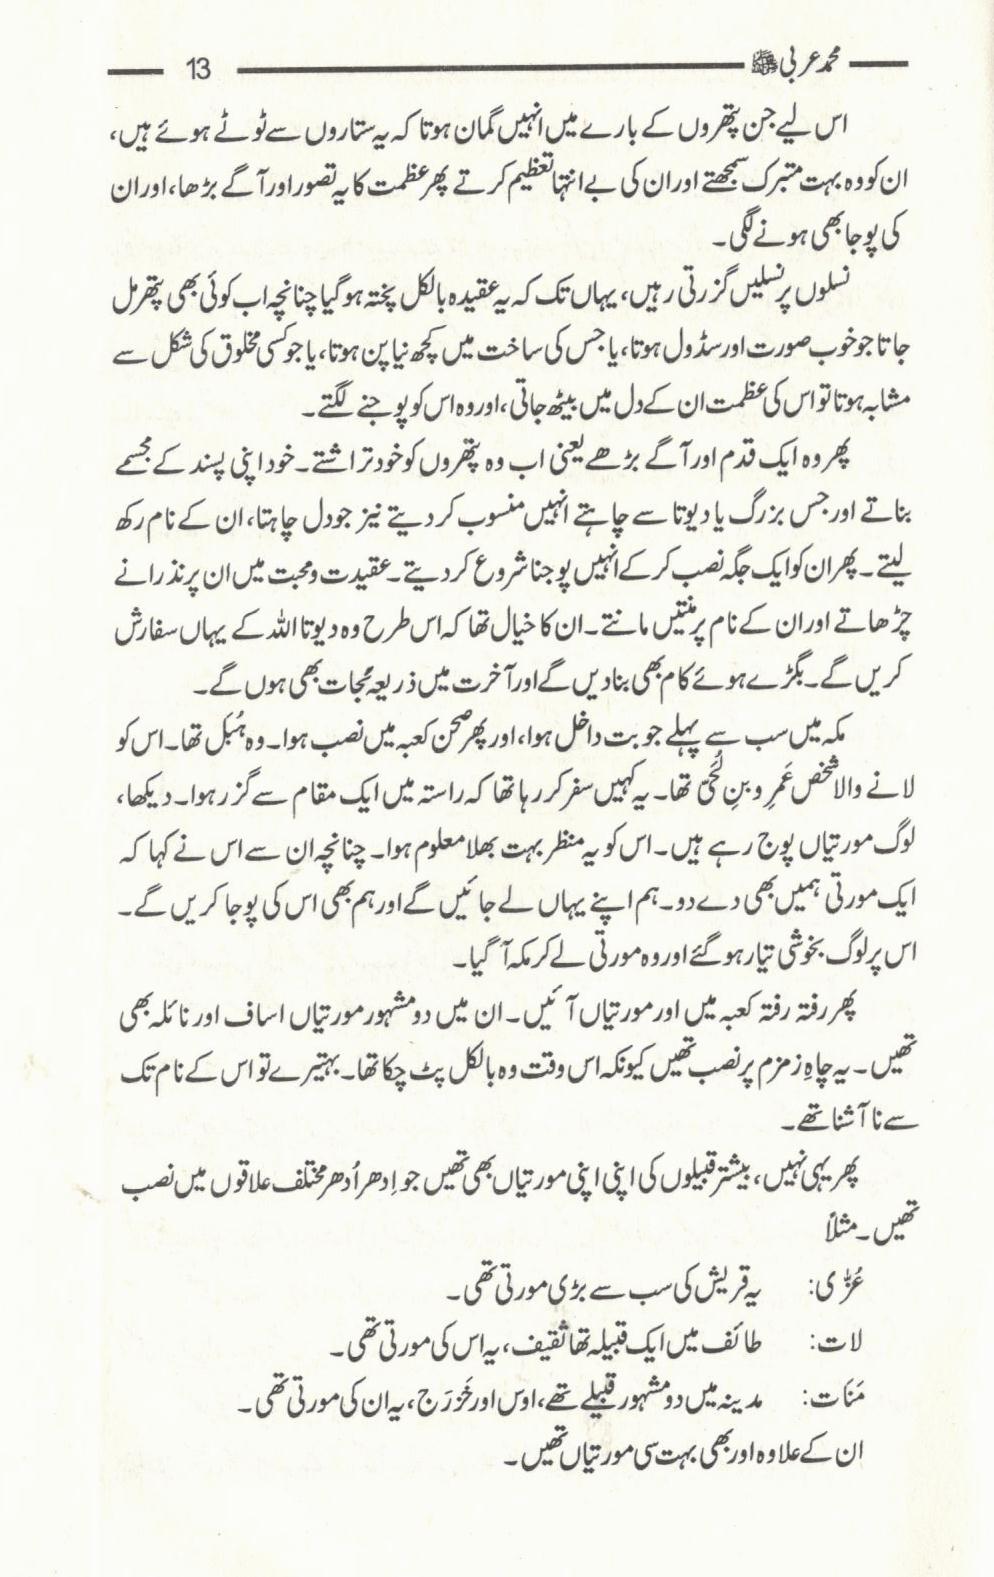 محمد عربی ﷺ 13
اس لیے جن پتھروں کے بارے میں انہیں گمان ہوتا کہ یہ ستاروں سے ٹوٹے ہوئے ہیں،
ان کو وہ بہت متبرک سمجھتے اور ان کی بے انتہا تعظیم کرتے پھر عظمت کا یہ تصور اور آگے بڑھا، اور ان
کی پوجا بھی ہونے لگی۔
نسلوں پر نسلیں گزرتی رہیں، یہاں تک کہ یہ عقیدہ بالکل پختہ ہو گیا چنانچہ اب کوئی بھی پتھر مل
جاتا جو خوب صورت اور سڈول ہوتا، یا جس کی ساخت میں کچھ نیا پن ہوتا، یا جو کسی مخلوق کی شکل سے
مشابہ ہوتا تو اس کی عظمت ان کے دل میں بیٹھ جاتی، اور وہ اس کو پوجنے لگتے۔
پھر وہ ایک قدم اور آگے بڑھے یعنی اب وہ پتھروں کو خود تراشتے۔ خود اپنی پسند کے مجسمے
بناتے اور جس بزرگ یا دیوتا سے چاہتے انہیں منسوب کر دیتے نیز جو دل چاہتا، ان کے نام رکھ
لیتے۔ پھر ان کو ایک جگہ نصب کر کے انہیں پوجنا شروع کر دیتے۔ عقیدت و محبت میں ان پر نذرانے
چڑھاتے اور ان کے نام پر منتیں مانتے۔ ان کا خیال تھا کہ اس طرح وہ دیوتا اللہ کے یہاں سفارش
کریں گے۔ بگڑے ہوئے کام بھی بنا دیں گے اور آخرت میں ذریعہ نجات بھی ہوں گے۔
مکہ میں سب سے پہلے جو بت داخل ہوا، اور پھر صحن کعبہ میں نصب ہوا۔ وہ ہُبَل تھا۔ اس کو
لانے والا شخص عَمرِ و بنِ لُحَیّ تھا۔ یہ کہیں سفر کر رہا تھا کہ راستہ میں ایک مقام سے گزر ہوا۔ دیکھا،
لوگ مورتیاں پوج رہے ہیں۔ اس کو یہ منظر بہت بھلا معلوم ہوا۔ چنانچہ ان سے اس نے کہا کہ
ایک مورتی ہمیں بھی دے دو۔ ہم اپنے یہاں لے جائیں گے اور ہم بھی اس کی پوجا کریں گے۔
اس پر لوگ بخوشی تیار ہو گئے اور وہ مورتی لے کر مکہ آ گیا۔
پھر رفتہ رفتہ کعبہ میں اور مورتیاں آئیں۔ ان میں دو مشہور مورتیاں اساف اور نائلہ بھی
تھیں۔ یہ چاہِ زمزم پر نصب تھیں کیونکہ اس وقت وہ بالکل پٹ چکا تھا۔ بہتیرے تو اس کے نام تک
سے نا آشنا تھے۔
پھر یہی نہیں، بیشتر قبیلوں کی اپنی اپنی مورتیاں بھی تھیں جو اِدھر اُدھر مختلف علاقوں میں نصب
تھیں۔ مثلاً
عُزّٰی: یہ قریش کی سب سے بڑی مورتی تھی۔
لات: طائف میں ایک قبیلہ تھا ثقیف، یہ اس کی مورتی تھی۔
مَنَات: مدینہ میں دو مشہور قبیلے تھے، اوس اور خَزرَج، یہ ان کی مورتی تھی۔
ان کے علاوہ اور بھی بہت سی مورتیاں تھیں۔